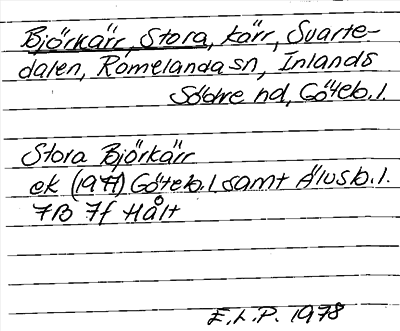 Björkärr, Stora, kärr, Svarte-
dalen, Romelanda sn, Inlands
Södre hd, Göteb. l.
Stora Björkärr
ek (1977) Göteb. l samt Älvsb. l.
7B 7f Hålt
E. L. P. 1978